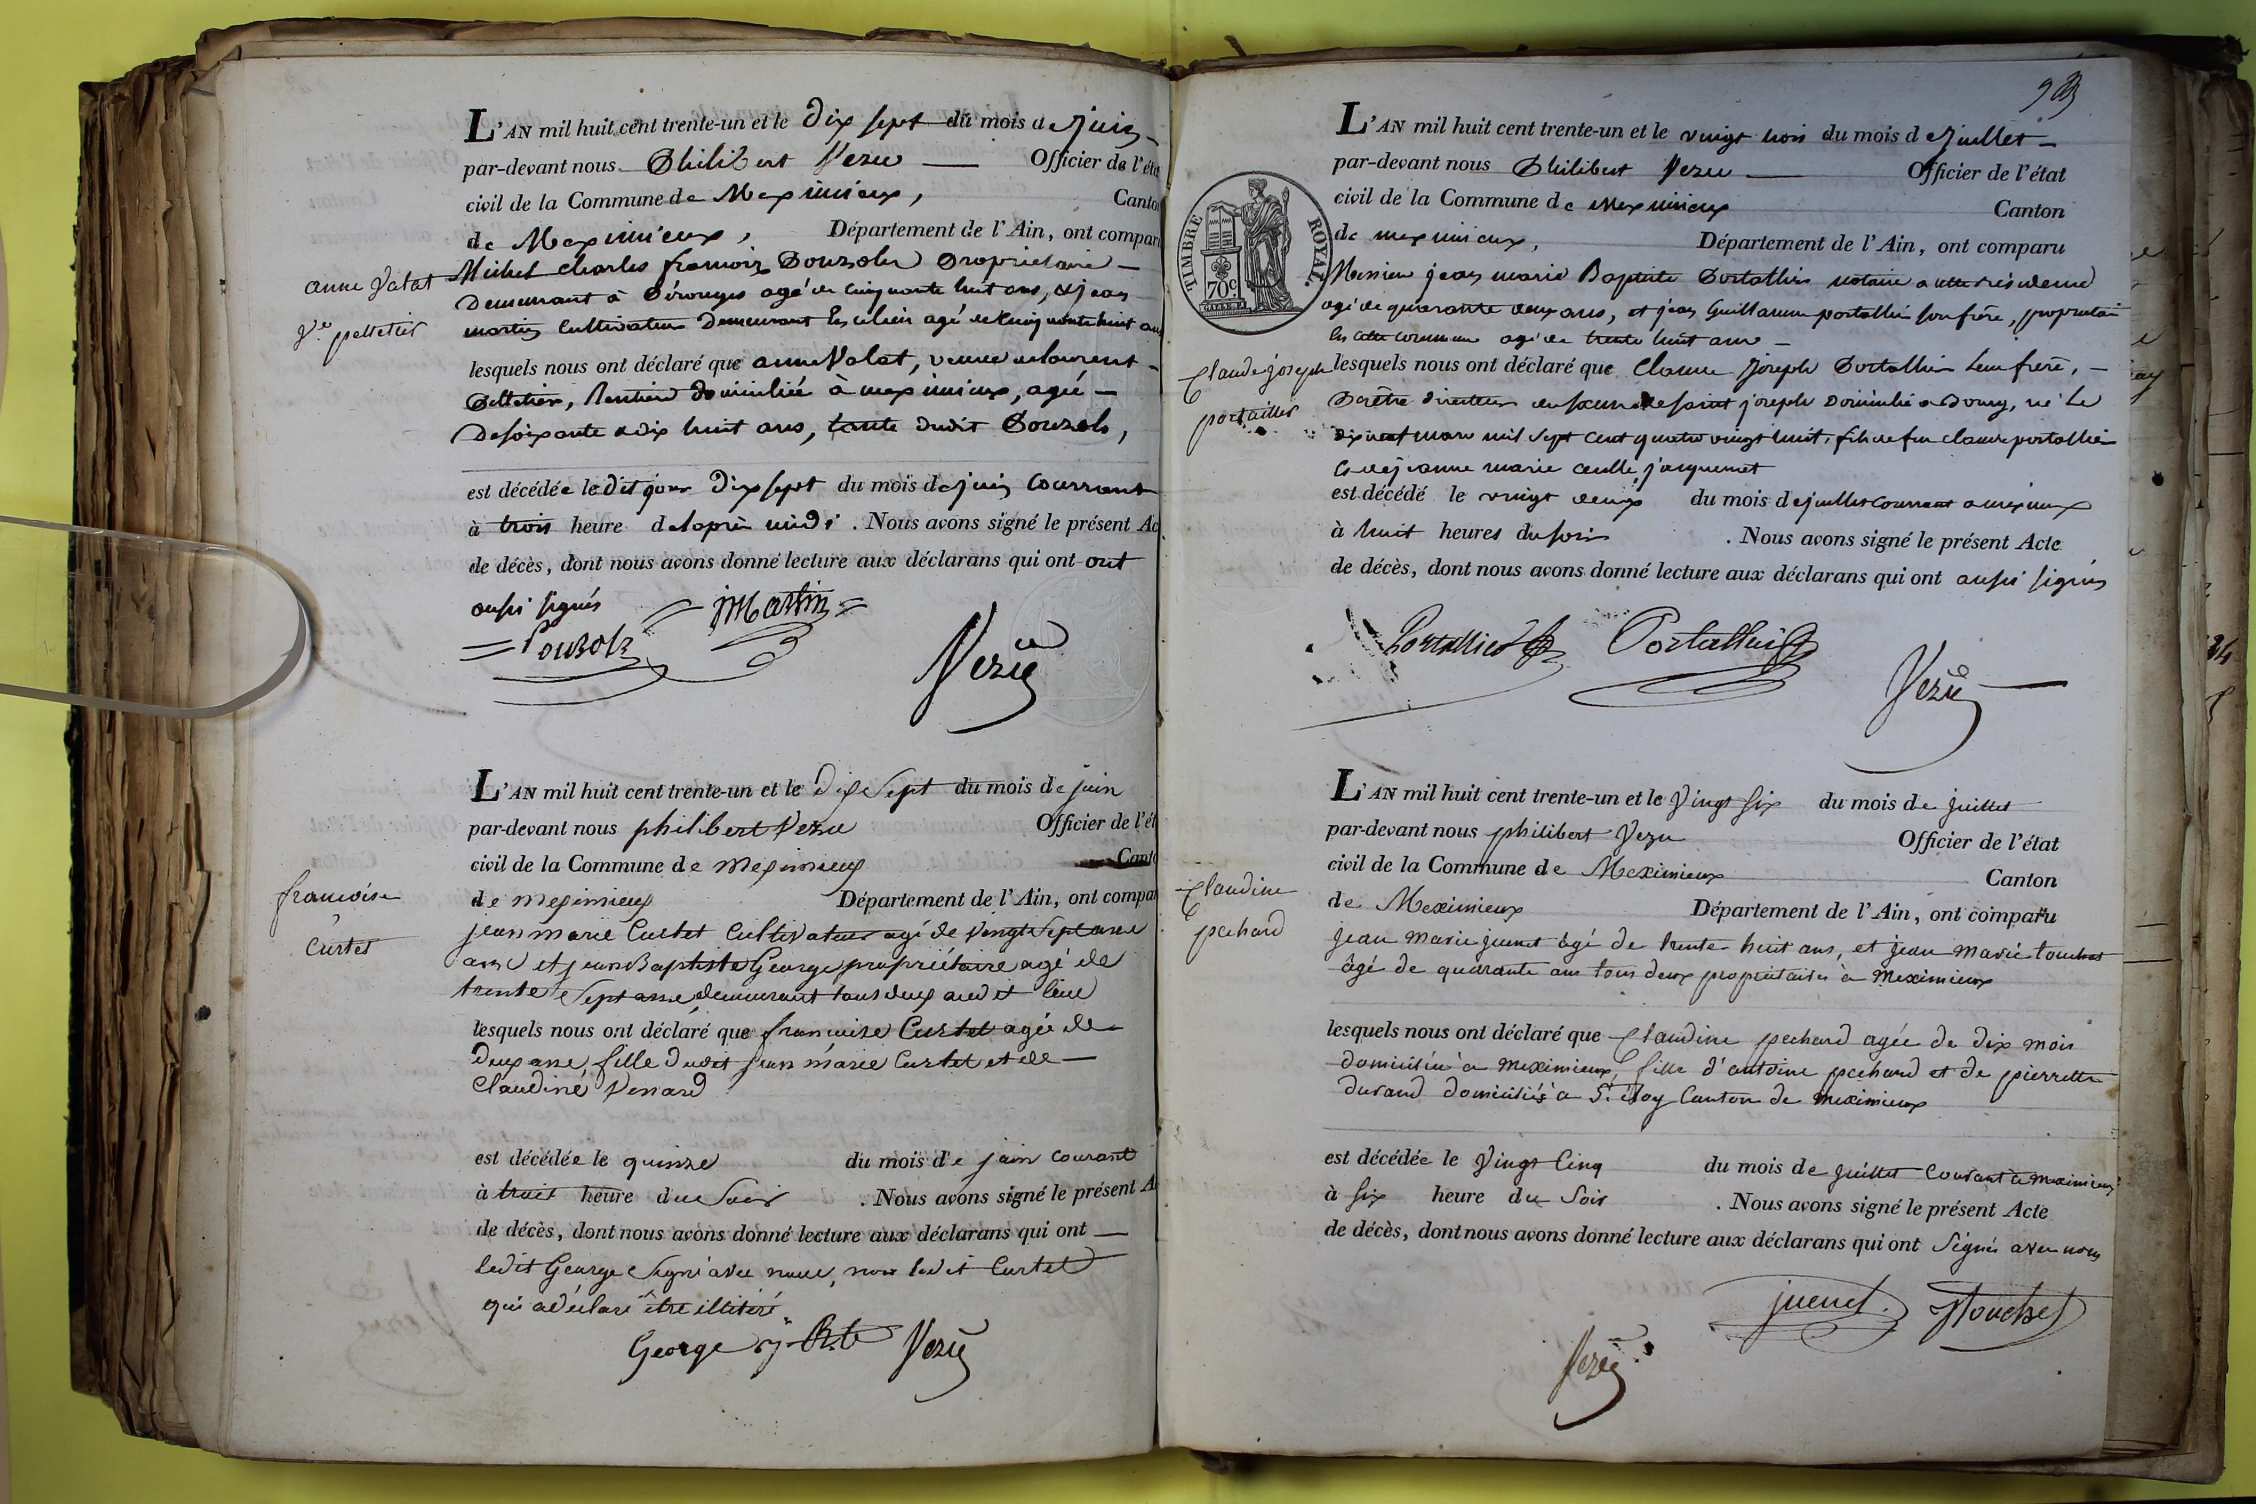 L'AN mil huit cent trente-un et le Dix sept du mois de juin
par-devant nous Philibert Vezu Officier de l'état
civil de la Commune de Meximieux, Canton
de Meximieux, Département de l'Ain, ont comparu
Michel Charles françois Pouzols Propriétaire
Demeurant à Pérouges agé de cinquante huit ans, & jean
martin Cultivateur Demeurant en ce lieu agé de cinquante huit ans
anne Valat
Ve. pelletier
lesquels nous ont déclaré que anne Valat, veuve de laurent
Pelletier, Rentière domiciliée à meximieux, agée
De soixante & dix huit ans, tante dudit Pouzols,
est décédée le dit jour Dix sept du mois de juin courrant
à trois heure de laprès midi. Nous avons signé le présent Ac
de décès, dont nous avons donné lecture aux déclarans qui ont ont
aussi signés
Pouzols jMartin
Vezu
L'AN mil huit cent trente-un et le Dix Sept du mois de juin
par-devant nous philibert Vezu Officier de l'ét
civil de la Commune de Meximieux Canto
de Meximieux Département de l'Ain, ont compar
francoise
Curtet
jean marie Curtet Cultivateur agé de Vingt Sept ans
et jean Baptiste George propriétaire agé de
trente Sept ans demeurant tous deux audit lieu
lesquels nous ont déclaré que francoise Curtet agée de
Deux ans, fille dudit jean marie Curtet et de
Claudine Venard
est décédée le quinze du mois de juin courant
à huit heure du Soir. Nous avons signé le présent A
de décès, dont nous avons donné lecture aux déclarans qui ont
ledit George Signé avec nous, non ledit Curtet
qui a déclaré être illitéré.
George Vezu
93
L'AN mil huit cent trente-un et le vingt trois du mois de juillet
par-devant nous Philibert Vezu Officier de l'état
civil de la Commune de Meximieux Canton
de meximieux, Département de l'Ain, ont comparu
TIMBRE ROYAL.
70c
Messieu jean marie Baptiste Portallier notaire a cette résidence
agé de quarante deux ans, et jean Guillaume portallier son frère, propriétaire
en cette commune agé de trente huit ans
Claude joseph
portallier
lesquels nous ont déclaré que Claude Joseph Portallier leur frère,
Prêtre directeur des sœurs de saint joseph Domicilié a Bourg, né le
dix neuf mars mil sept cent quatre vingt huit, fils de feu claude portallier
& de jeanne marie jacquemet
est décédé le vingt deux du mois de juillet courrant a meximieux
à huit heures du soir. Nous avons signé le présent Acte
de décès, dont nous avons donné lecture aux déclarans qui ont aussi signés
Portallier Portallier
Vezu
L'AN mil huit cent trente-un et le Vingt Six du mois de juillet
par-devant nous philibert Vezu Officier de l'état
civil de la Commune de Meximieux Canton
de Meximieux Département de l'Ain, ont comparu
Claudine
pechard
jean Marie juenet âgé de trente huit ans, et jean Marie touchet
âgé de quarante ans tous deux propriétaires à Meximieux
lesquels nous ont déclaré que Claudine pechard agée de dix mois
domiciliée à Meximieux, fille d'antoine pechard et de pierrette
durand domiciliés à St. éloy Canton de Meximieux
est décédée le Vingt Cinq du mois de juillet Courant à meximieux
à Six heure du Soir. Nous avons signé le présent Acte
de décès, dont nous avons donné lecture aux déclarans qui ont Signés avec nous
juenet. Touchet
Vezu